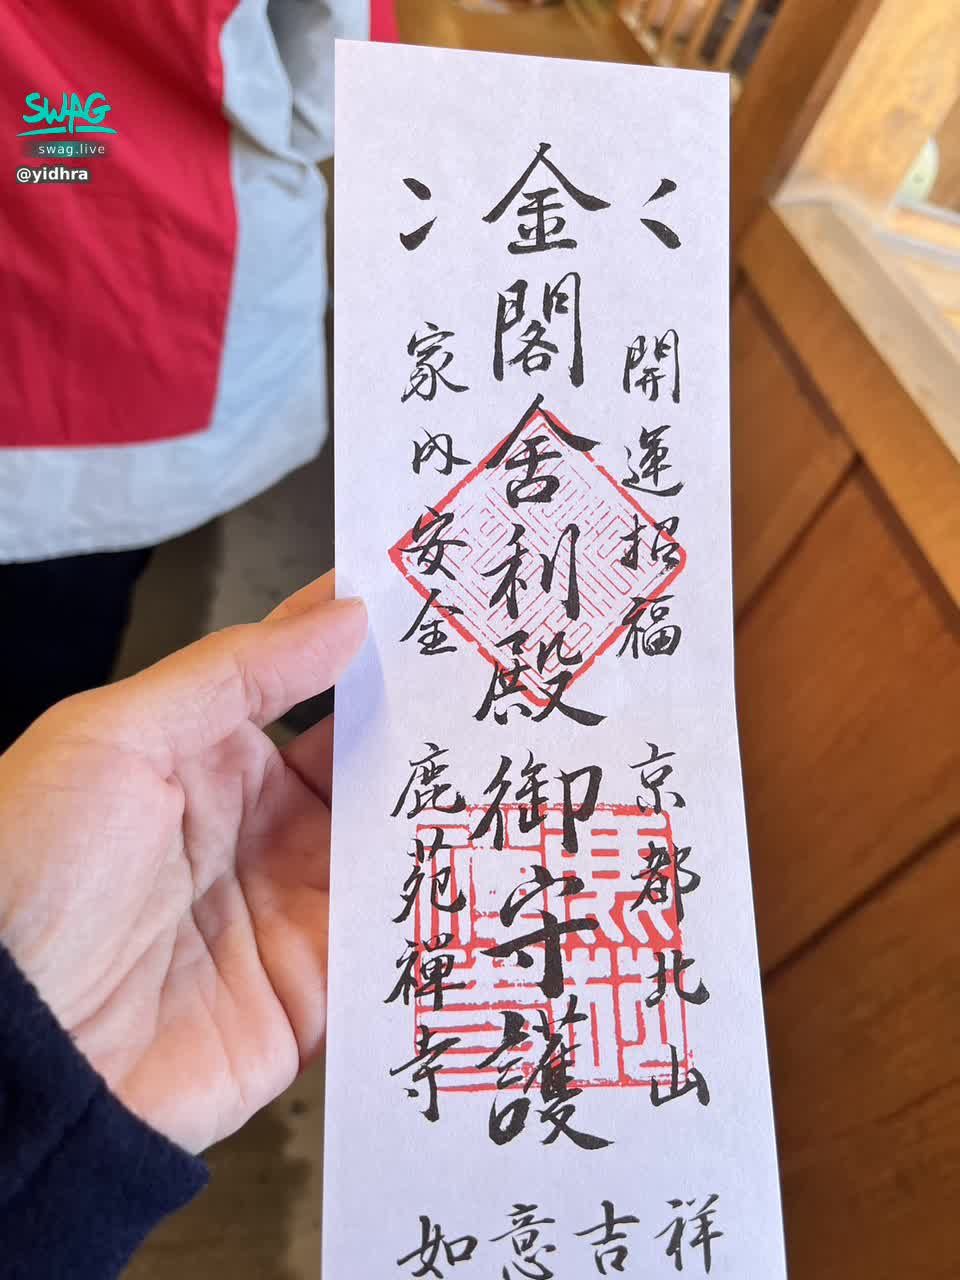 SWAG
swag.live
@yidhra
開運招福
京都北山
金閣舍利殿
御守護
家内安全
鹿苑禅寺
如意吉祥